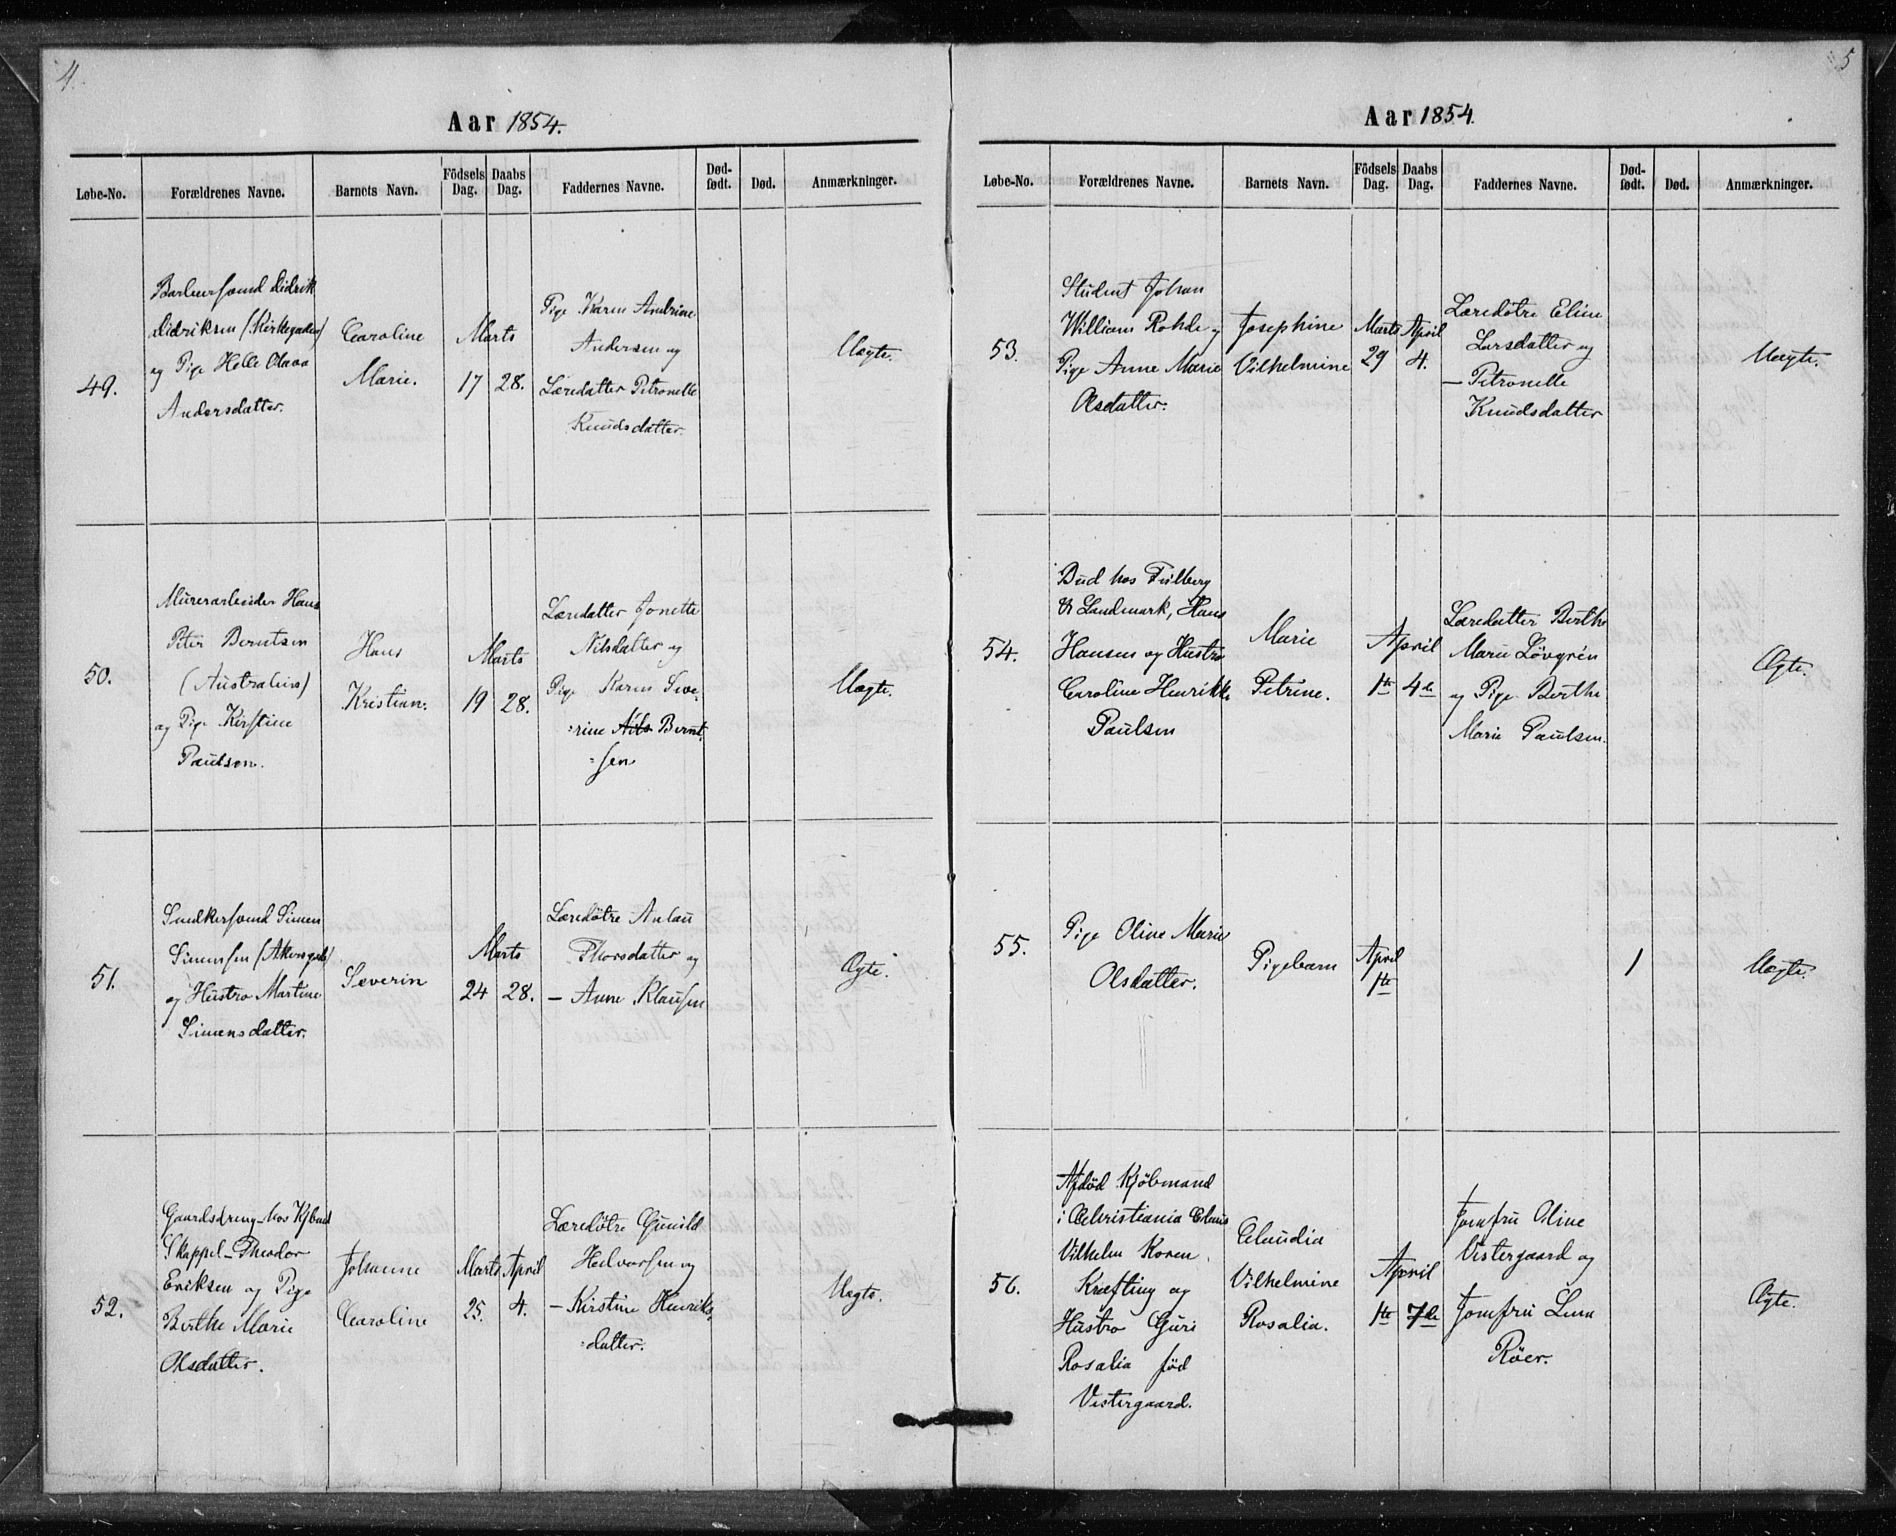 4.
Aar 1854.
Løbe-No.
Forældrenes Navne.
Barnets Navn.
Fødsels Dag.
Daabs Dag.
Faddernes Navne.
Død-født.
Død.
Anmærkninger.
49.
Didrik
Didriksen (Kirkegaden)
og Pige Helle Olava
Andersdatter.
Caroline
Marie.
Marts
17 28.
Pige Karen Andrine
Andersen og
Læredatter Petronelle
Knudsdatter.
Uægte.
50.
Murerarbeider Hans
Peter Berntsen
(Australien)
og Pige Kirstine
Paulsen.
Hans
Kristian.
Marts
19 28.
Læredatter Jonette
Nilsdatter og
Pige Karen Seve-
-rine Nils Bernt-
-sen
Uægte.
51.
Snedkersvend Simen
Simensen (Akersgade)
og Hustro Martine
Simensdatter.
Severin
Marts
24 28.
Læredøtre
Thorsdatter og
— Anne Klausen
Ægte.
52.
Gaardsdreng hos Kjbmd
Skappel – Theodor
Eriksen og Pige
Berthe Marie
Olsdatter.
Johanne
Caroline
Marts April
25. 4.
Læredøtre Gunild
Halvorsen og
— Kirstine Henriks-
-datter.
Uægte.
5
Aar 1854.
Løbe-No.
Forældrenes Navne.
Barnets Navn.
Fødsels Dag.
Daabs Dag.
Faddernes Navne.
Død-født.
Død.
Anmærkninger.
53.
Student Johan
William Rohde og
Pige Anne Marie
Olsdatter.
Josephine
Vilhelmine
Marts April
29 4.
Læredøtre Eline
Larsdatter og
— Petronelle
Knudsdatter
Uægte.
54.
Bud hos
& Landmark, Hans
Hansen og Hustro
Caroline Henrikke
Paulsen
Marie
Petrine.
April
1ste 4de
Læredatter Berthe
Marie Løvgrén
og Pige Berthe
Marie Paulsen.
Ægte.
55.
Pige Oline Marie
Olsdatter.
Pigebarn
April
1ste
1
Uægte.
56.
Afdød Kjøbmand
i Christiania Claus
Vilhelm Koren
Kræfting og
Hustro Guri
Rosalia fød
Vestergaard.
Claudia
Vilhelmine
Rosalia.
April
1ste 7de
Jomfru Oline
Vestergaard og
Jomfru Lina
Röer.
Ægte.